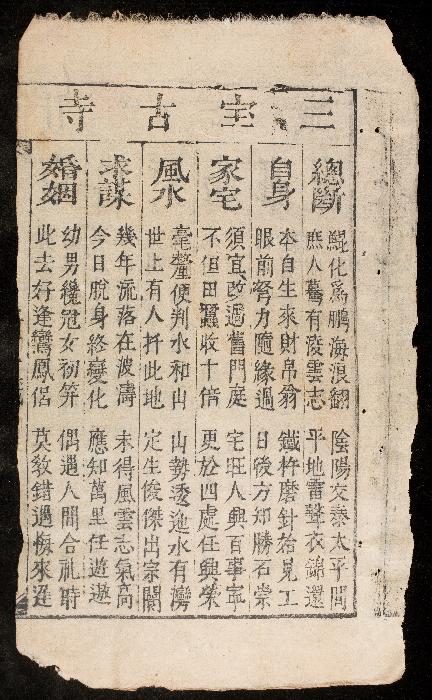 三宝古寺
總斷
鯤化為鵬海浪翻 陰陽交泰太平間
庶人驀有凌雲志 平地雷聲衣錦還
自身
本自生來財帛翁 鐵杵磨針始見工
眼前努力隨緣過 日後方知勝石崇
家宅
須宜改過舊門庭 宅旺人興百事寧
不但田蠶收十倍 更於四處任興榮
風水
毫釐便判水和山 山勢透迤水有灣
世上有人扦此地 定生俊傑出宗關
求謀
幾年流落在波濤 未得風雲志氣高
今日脫身終變化 應知萬里任遊遨
婚姻
幼男纔冠女初笄 偶遇人間合禮時
此去好逢鸞鳳侶 莫教錯過悔來遲